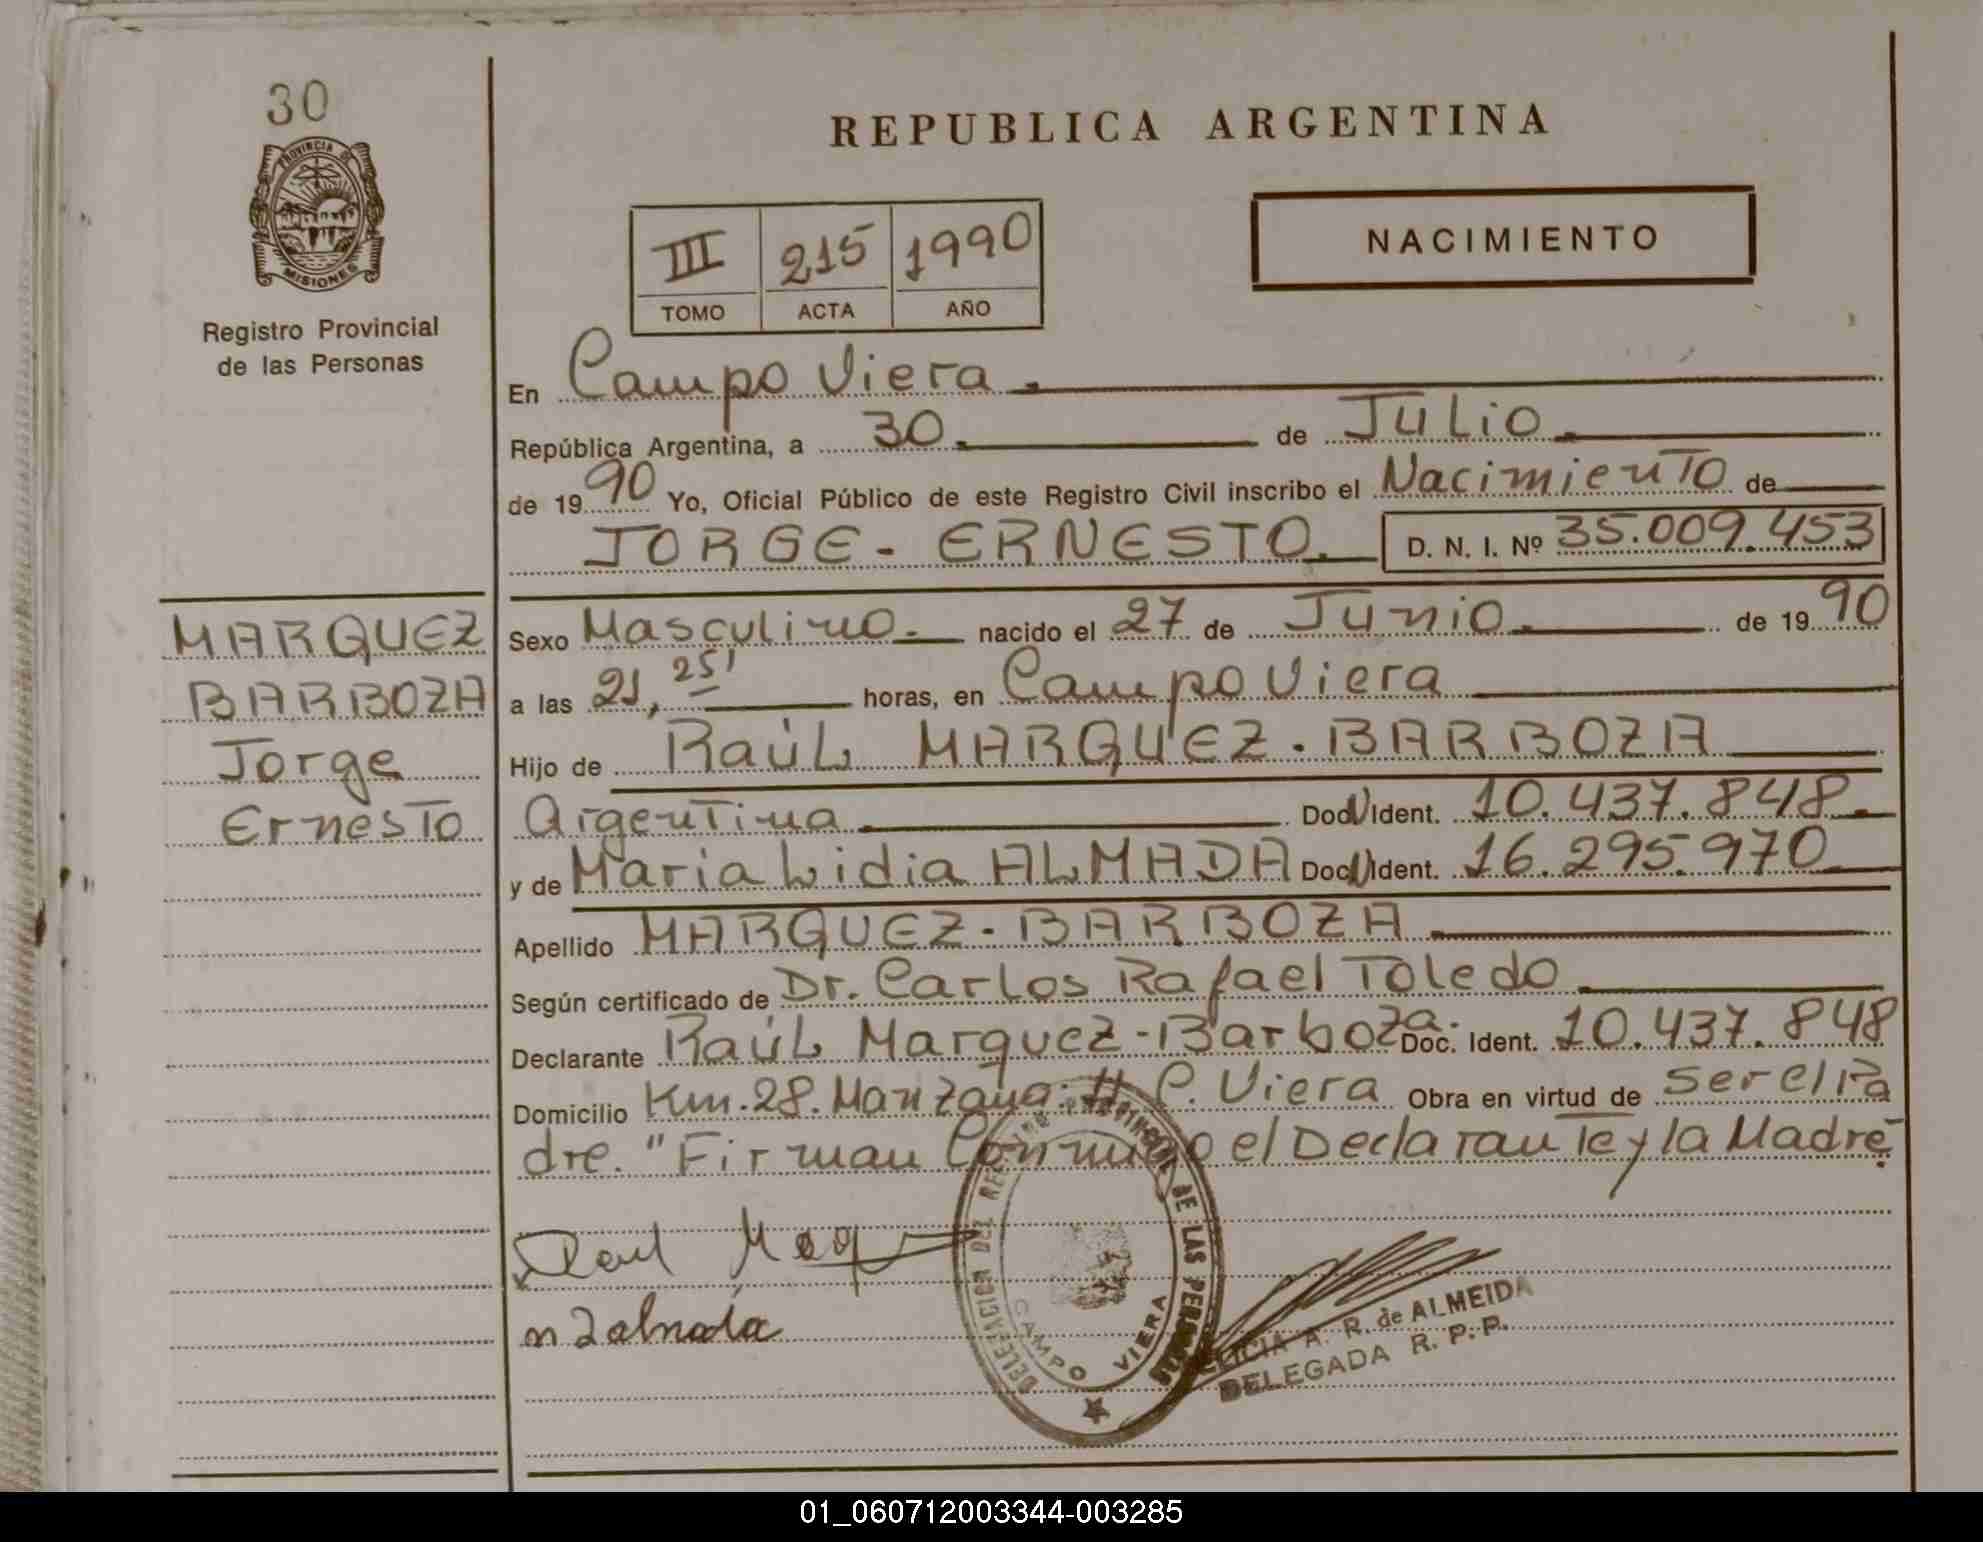 30
PROVINCIA DE
MISIONES
Registro Provincial
de las Personas
REPUBLICA ARGENTINA
III 215 1990
TOMO ACTA AÑO
NACIMIENTO
En Campo Viera.
República Argentina, a 30. de Julio.
de 1990 Yo, Oficial Público de este Registro Civil inscribo el Nacimiento de
JORGE - ERNESTO. D. N. I. Nº 35.009.453
MARQUEZ
BARBOZA
Jorge
Ernesto
Sexo Masculino. nacido el 27 de Junio. de 1990
a las 21, 25' horas, en Campo Viera
Hijo de Raúl MARQUEZ - BARBOZA
Argentina Doc. Ident. 10.437.848.
y de Maria Lidia ALMADA Doc. Ident. 16.295.970
Apellido MARQUEZ - BARBOZA
Según certificado de Dr. Carlos Rafael Toledo
Declarante Raúl Marquez - Barboza Doc. Ident. 10.437.848
Domicilio Km. 28. Manzana: H C. Viera Obra en virtud de ser el Pa
dre. "Firman Conmigo el Declarante y la Madre"
Raul
DELEGACION DEL REGISTRO PROVINCIAL DE LAS PERSONAS
CAMPO VIERA
ALICIA A. R. de ALMEIDA
DELEGADA R. P. P.
01_060712003344-003285